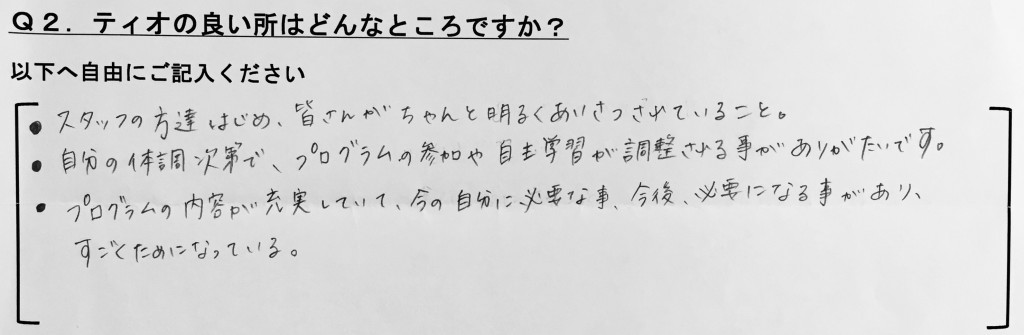 Q2．ティオの良い所はどんなところですか？
以下へ自由にご記入ください
• スタッフの方達はじめ、皆さんがちゃんと明るくあいさつされていること。
• 自分の体調次第で、プログラムの参加や自主学習が調整される事がありがたいです。
• プログラムの内容が充実していて、今の自分に必要な事、今後、必要になる事があり、
すごくためになっている。